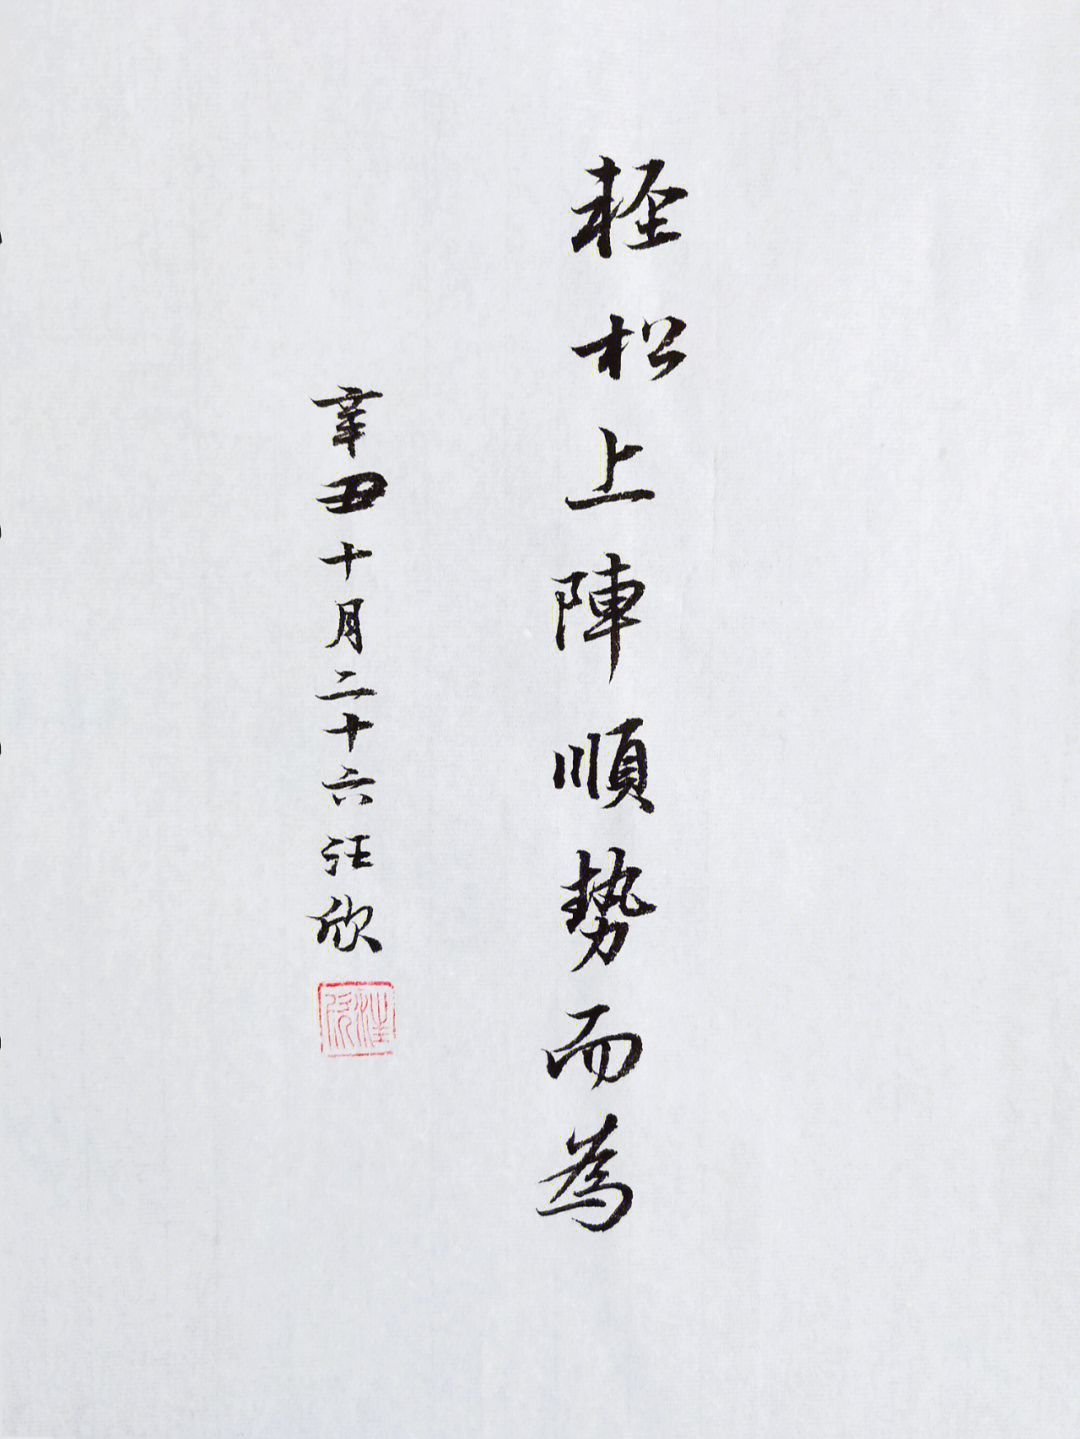 輕松上陣順势而為
辛丑十月二十六汪欣
汪欣